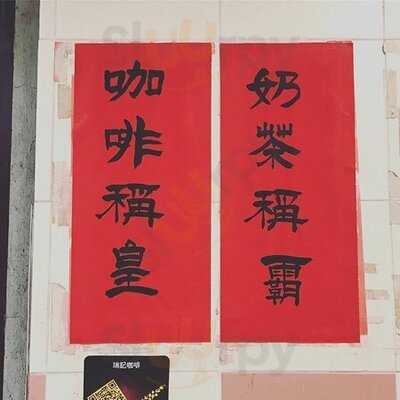 奶茶稱霸
咖啡稱皇
瑞記咖啡